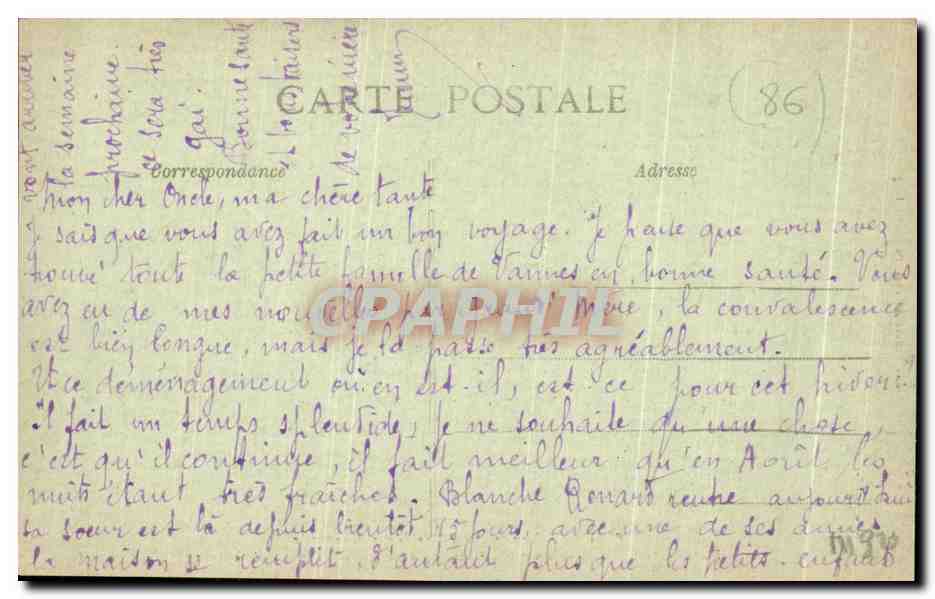 CARTE POSTALE
(86)
Correspondance
Adresse
Mon cher Oncle, ma chère tante
Je sais que vous avez fait un bon voyage. Je pense que vous avez
trouvé toute la petite famille de Vannes en bonne santé. Vous
avez eu de mes nouvelles par Mère, la convalescence
est bien longue, mais je la passe très agréablement.
Et ce déménagement où en est-il, est-ce pour cet hiver?
Il fait un temps splendide, je ne souhaite qu'une chose,
c'est qu'il continue, il fait meilleur qu'en Août, les
nuits étant très fraîches. Blanche Renard rentre aujourd'hui
sa soeur est là depuis bientôt 15 jours avec une de ses amies
la maison se remplit d'autant plus que les petits enfants
vont arriver
la semaine
prochaine.
ce sera très
gai.
Bonne santé
et bons baisers
de votre nièce
CPAPHIL